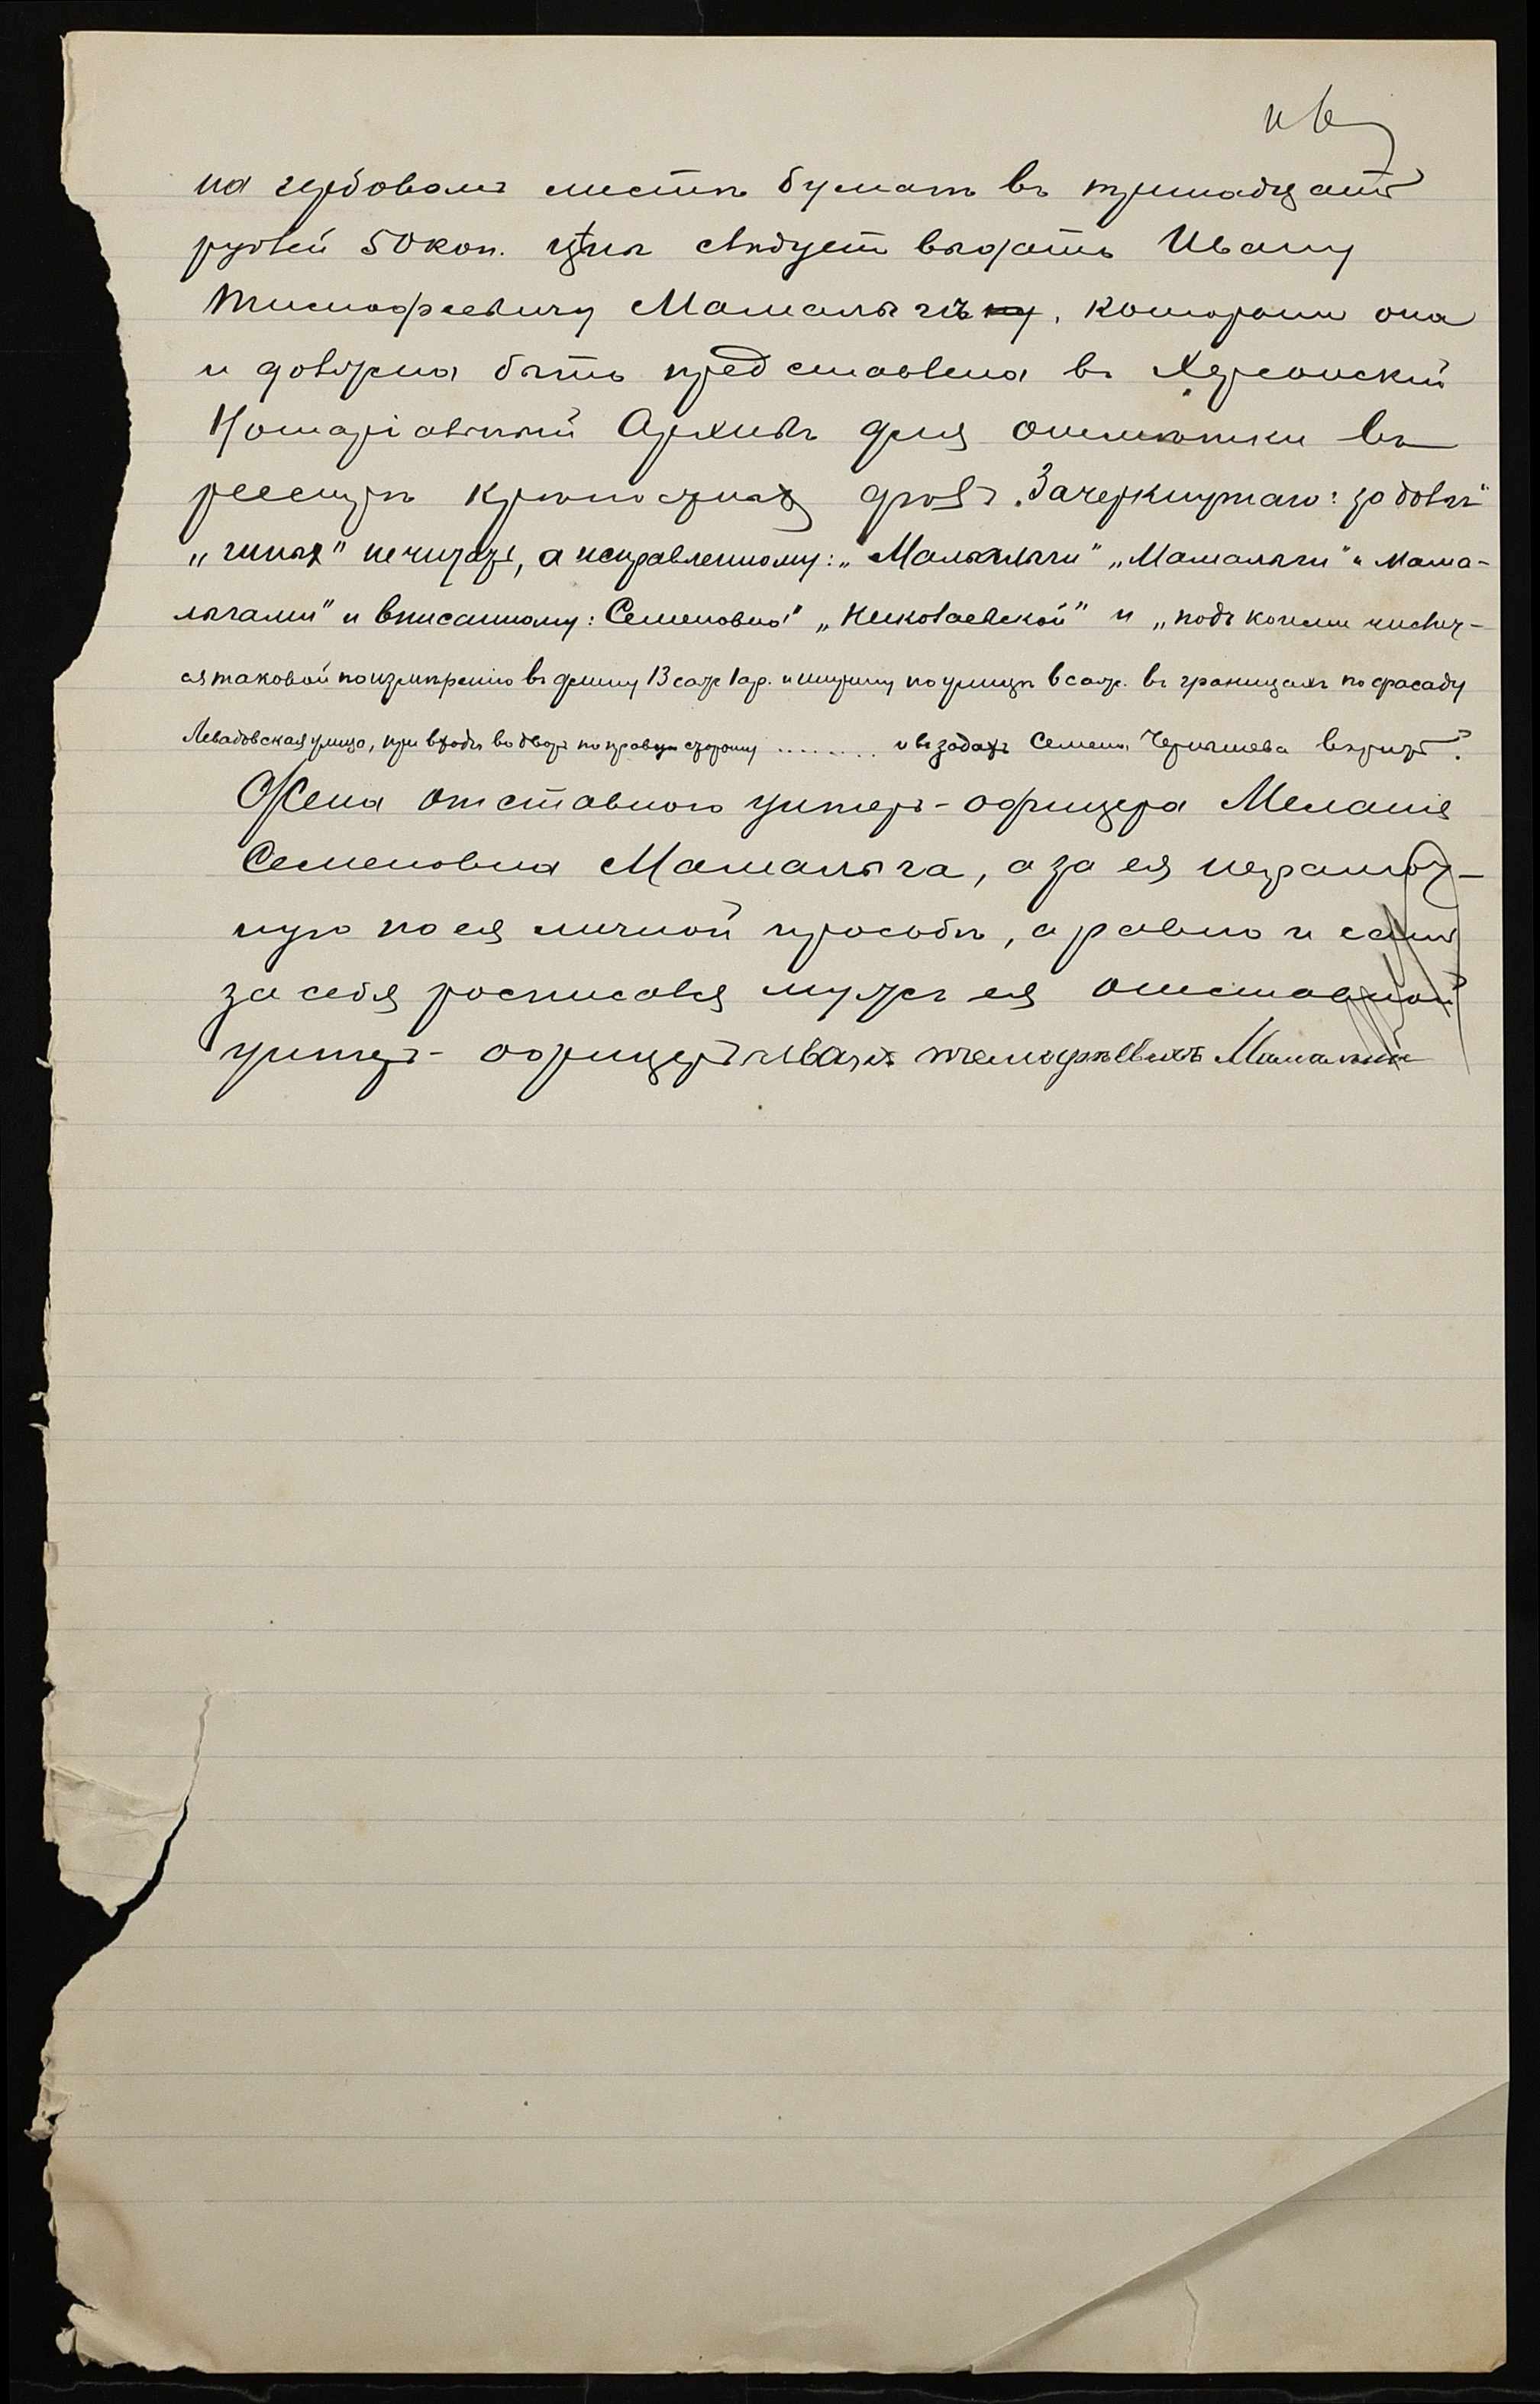 на гербовомъ листѣ бумаги въ тринадцать
рублей 50 коп. цѣны слѣдуетъ выдать Ивану
Тимофеевичу Мамалыгѣ, которыми она
и должна быть представлена въ Херсонскій
Нотаріальный Архивъ для отмѣтки въ
реестрѣ крѣпостныхъ дѣлъ. Зачеркнутаго:
"ныхъ" не читать, а исправленному: "Мамалыги" "Мамалыги" и Мама-
лыгами" и вписанному: Семеновна" "Николаевской" и "подъ коими числит-
ся таковой по измѣренію въ длину 13 саж 1 ар. и ширину по улицѣ 8 саж. въ границахъ по фасаду
Левадовская улица, при входѣ во дворъ по правую сторону ........ и въ задахъ Семена Чернышева вѣрить.
Жена отставного унтеръ-офицера Меланія
Семеновна Мамалыга, а за ея неграмот-
ную по ея личной просьбѣ, а равно и самъ
за себя росписался мужъ ея отставной
унтеръ-офицеръ Иванъ Тимофѣевичъ Мамалыга